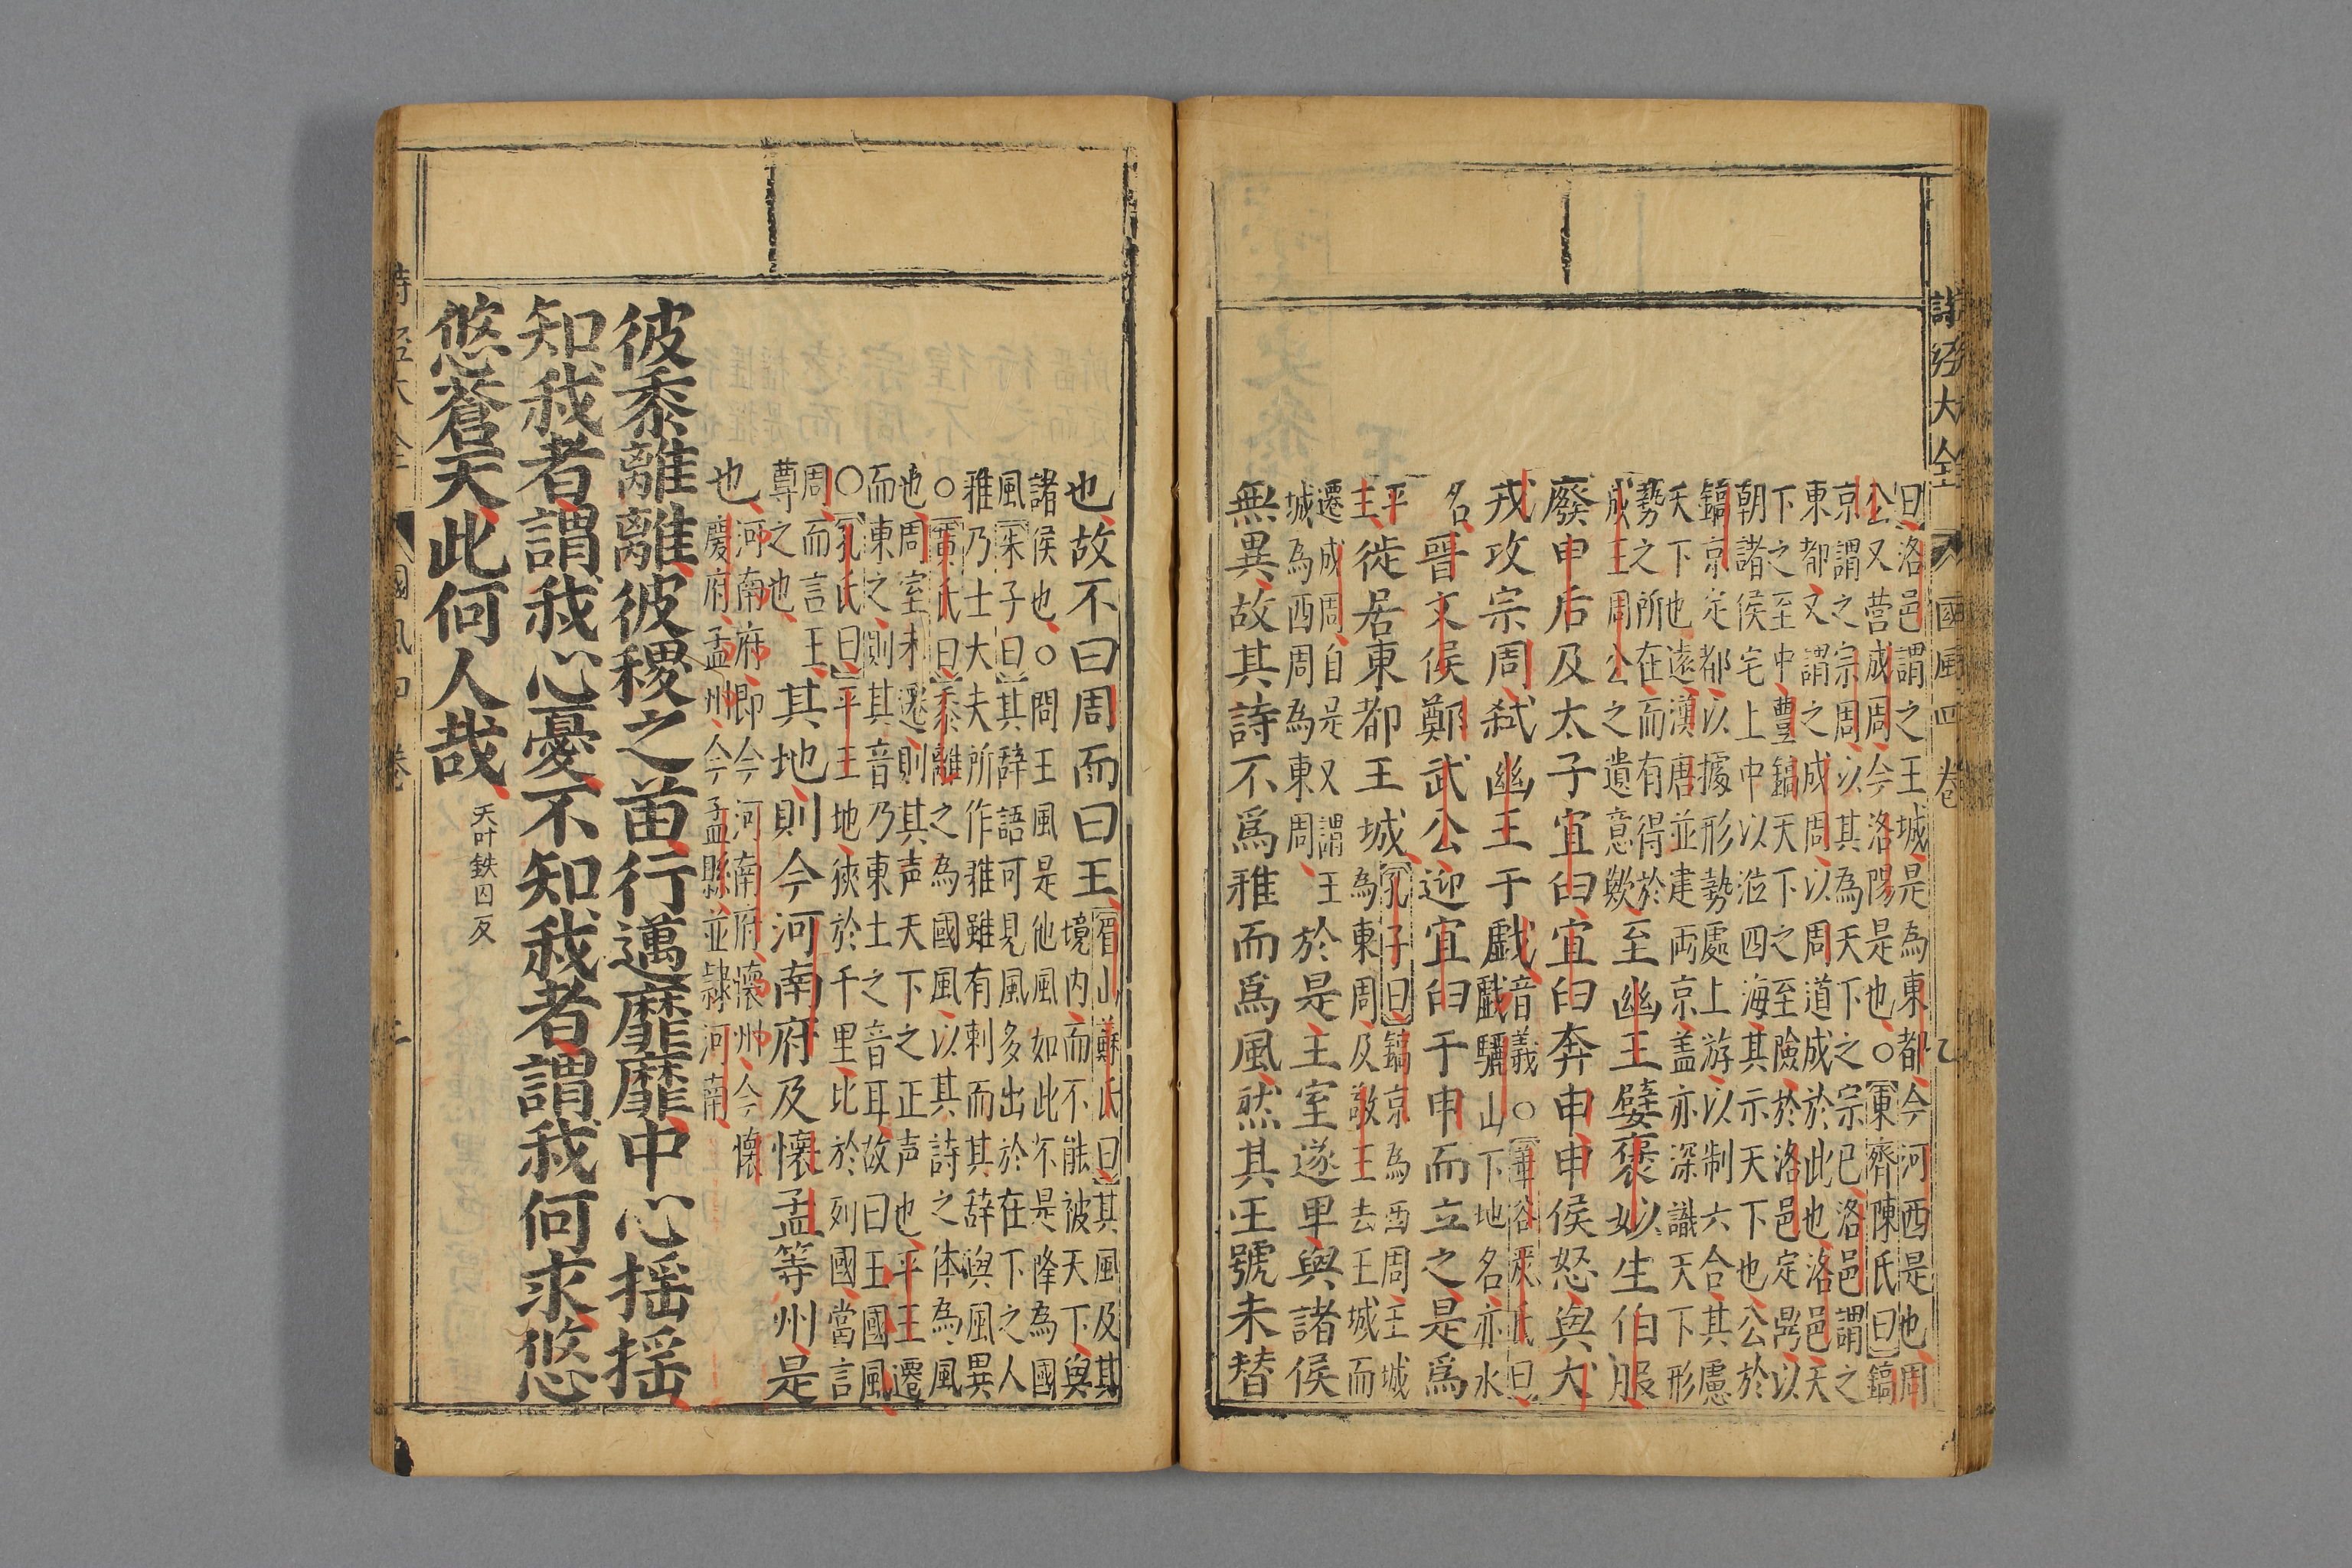 詩經大全 國風四卷 七
曰洛邑謂之王城是為東都今河西是也周
公又营成周今洛陽是也○東齊陳氏曰鎬
京謂之宗周以其為天下之宗已洛邑謂之
東都又謂之成周以周道成於此也洛邑天
下之至中豐鎬天下之至險於洛邑定鼎以
朝諸侯宅上中以涖四海其示天下也公於
鎬京定都以據形勢處上游以制六合其慮
天下也遠漢唐並建兩京盖亦深識天下形
勢之所在而有得於
成王周公之遺意歟至幽王嬖褒姒生伯服
廢申后及太子宜臼宜臼奔申申侯怒與犬
戎攻宗周弑幽王于戲音義○華谷嚴氏曰
戲驪山下地名亦水
名晉文侯鄭武公迎宜臼于申而立之是爲
平王徙居東都王城孔子曰鎬京為西周王城
為東周及敬王去王城而
遷成周自是又謂王
城為西周為東周於是王室遂卑與諸侯
無異故其詩不爲雅而爲風然其王號未替
也故不曰周而曰王眉山蘇氏曰其風及其
境内而不能被天下與
諸侯也○問王風是他風如此不是降為國
風朱子曰其辭語可見風多出於在下之人
雅乃士大夫所作雅雖有刺而其辞與風異
○黄氏曰黍離之為國風以其詩之体為風
也周室未遷則其声天下之正声也平王遷
而東之則其音乃東土之音耳故曰王國風
○孔氏曰平王地狹於千里比於列國當言
周而言王
尊之也其地則今河南府及懷孟等州是
也河南府即今河南府懷州今懷
慶府孟州今孟縣並隷河南
彼黍離離彼稷之苗行邁靡靡中心揺揺
知我者謂我心憂不知我者謂我何求悠
悠蒼天此何人哉天叶鉄囙反